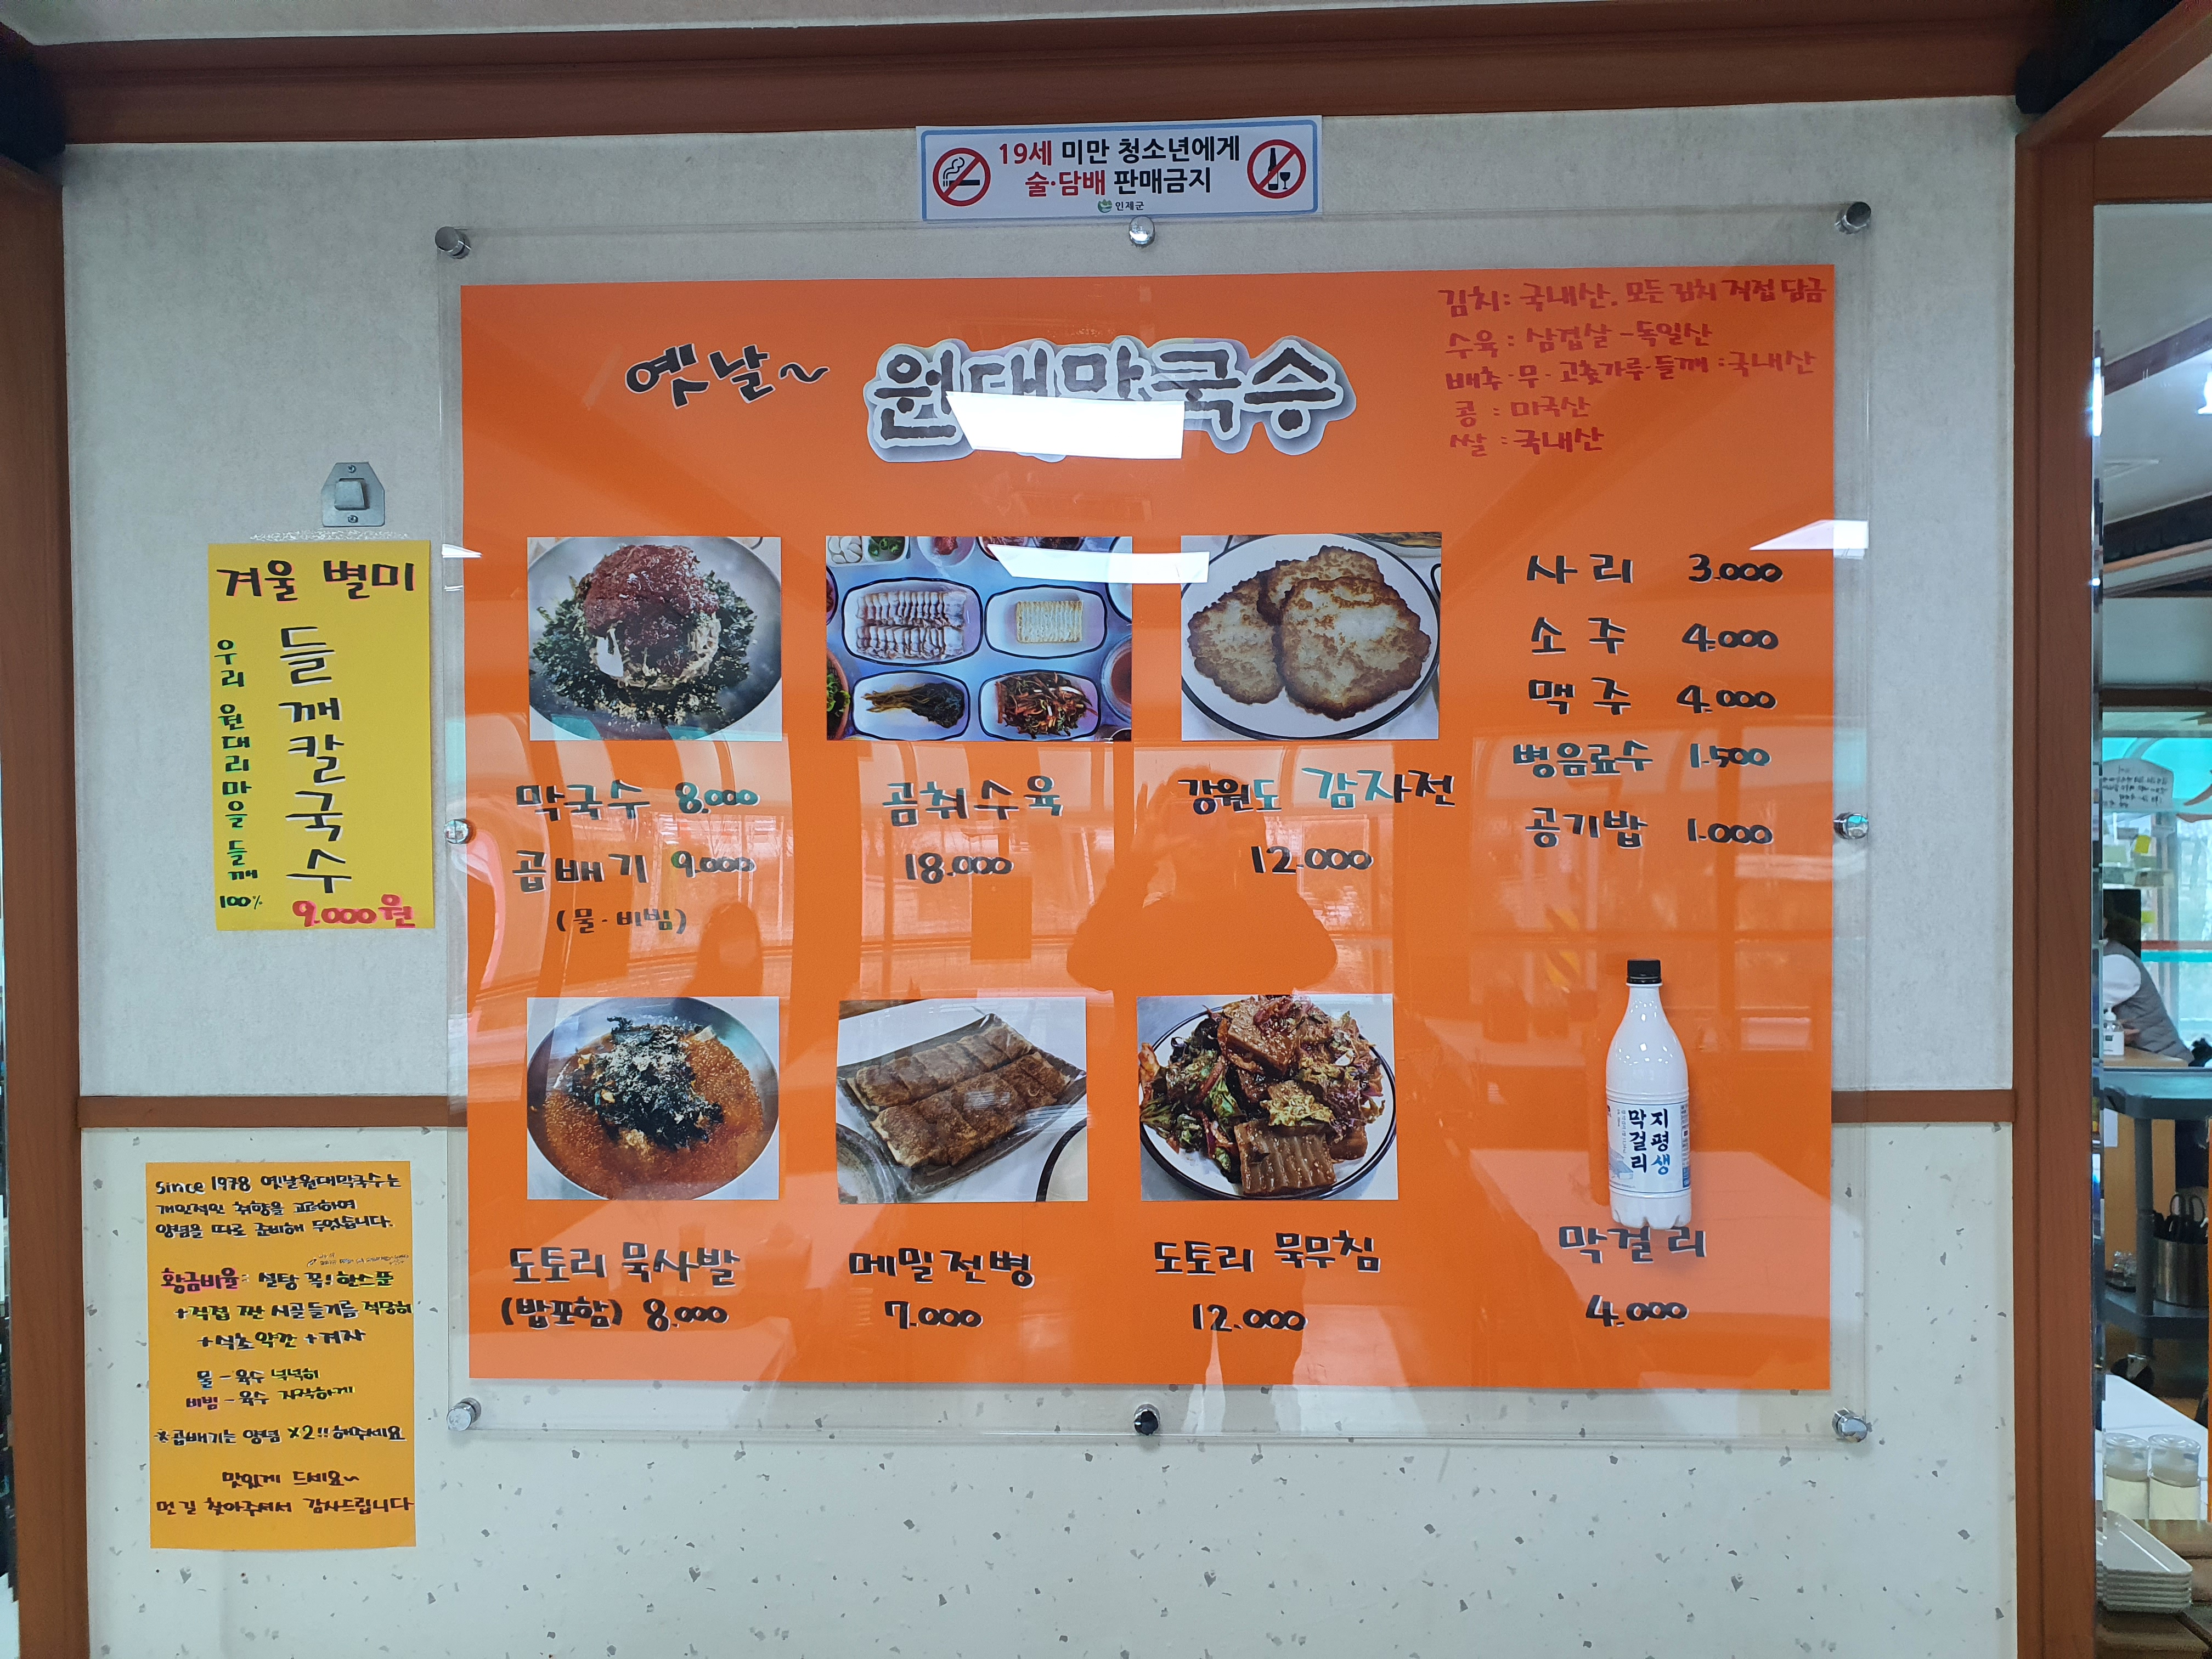 19세 미만 청소년에게
술·담배 판매금지
인제군
옛날~ 원대막국수
김치: 국내산. 모든 김치 직접 담금
수육: 삼겹살-독일산
배추·무·고춧가루·들깨:국내산
콩 : 미국산
쌀 : 국내산
겨울 별미
들깨칼국수
우리 원대리마을 들깨 100%
9.000원
막국수 8.000
곱배기 9.000
(물·비빔)
곰취수육
18.000
강원도 감자전
12.000
사리 3.000
소주 4.000
맥주 4.000
병음료수 1.500
공기밥 1.000
도토리 묵사발
(밥포함) 8.000
메밀전병
7.000
도토리 묵무침
12.000
지평생
막걸리
막걸리
4.000
Since 1978 옛날원대막국수는
개인적인 취향을 고려하여
양념을 따로 준비해 두었습니다.
황금비율: 설탕 꼭! 한스푼
+직접 짠 시골들기름 적당히
+식초약간 +겨자
물-육수 넉넉히
비빔-육수 자작하게
*곱배기는 양념 X2!! 해주세요
맛있게 드세요~
먼길 찾아주셔서 감사드립니다